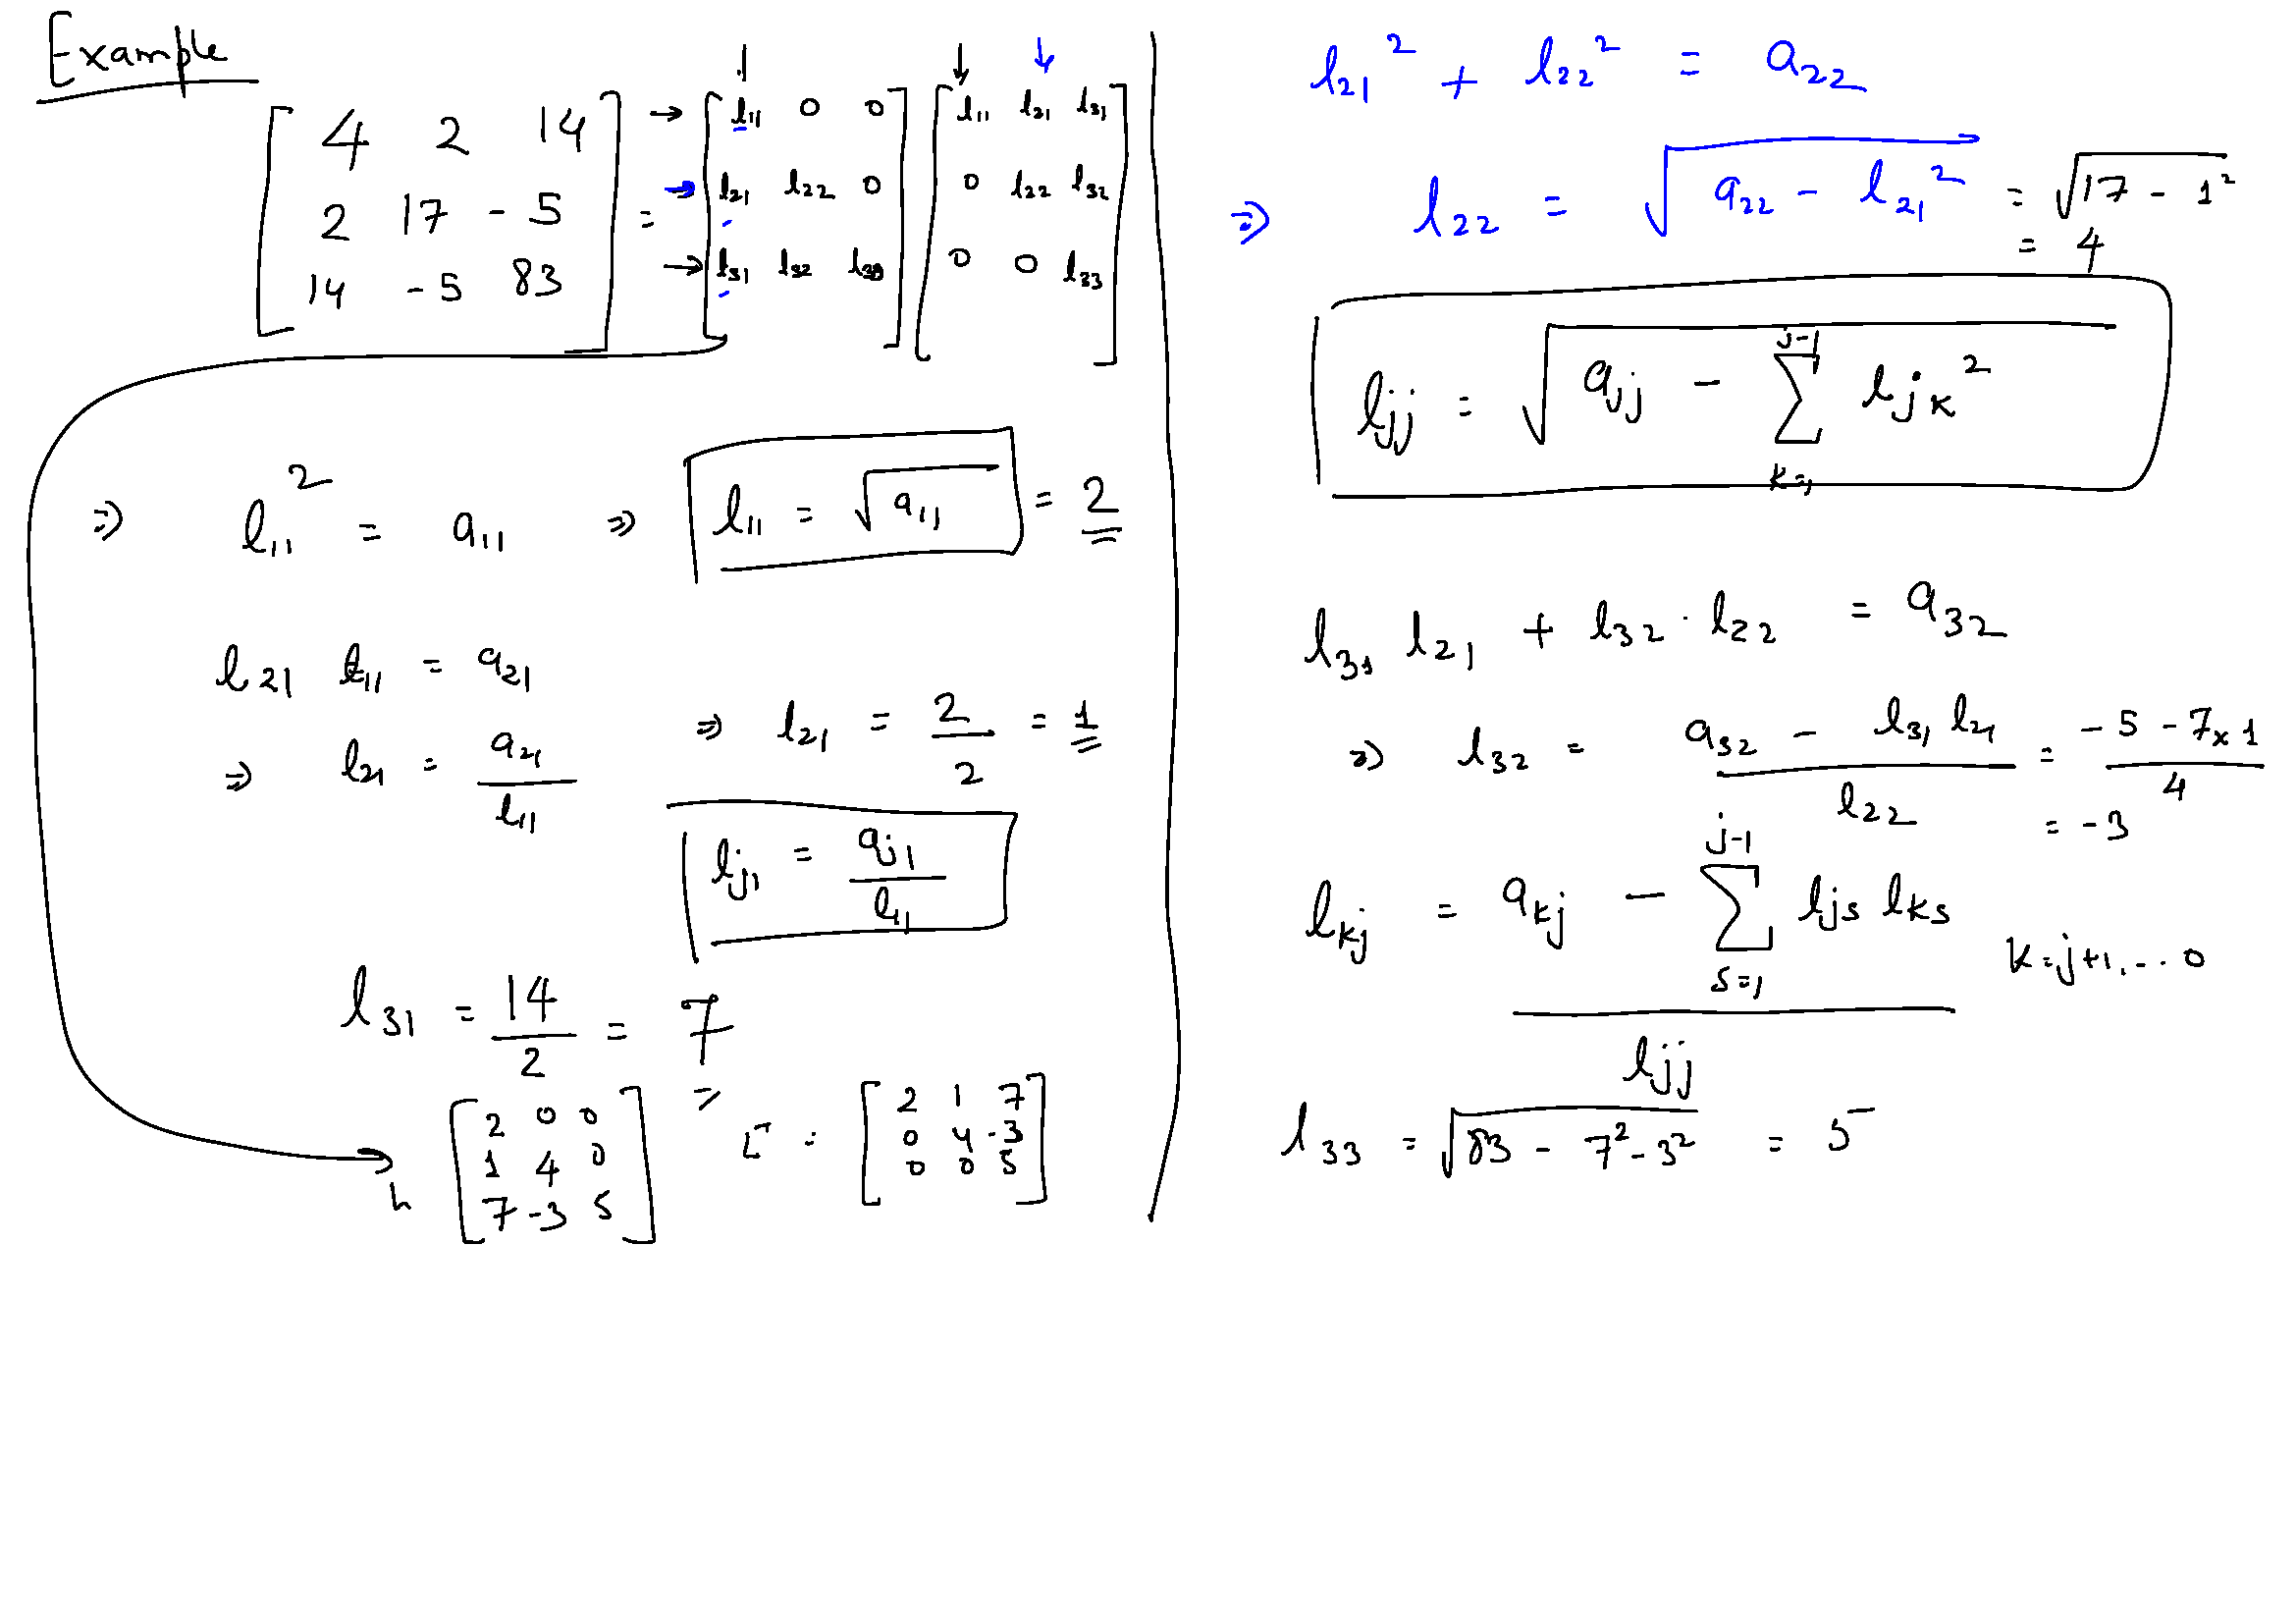 Example
[ 4 2 14 ] → [ l₁₁ 0 0 ] [ l₁₁ l₂₁ l₃₁ ]
[ 2 17 -5 ] = → [ l₂₁ l₂₂ 0 ] [ 0 l₂₂ l₃₂ ]
[ 14 -5 83 ] → [ l₃₁ l₃₂ l₃₃ ] [ 0 0 l₃₃ ]
⇒ l₁₁² = a₁₁ ⇒ l₁₁ = √a₁₁ = 2
l₂₁ l₁₁ = a₂₁
⇒ l₂₁ = a₂₁ / l₁₁ ⇒ l₂₁ = 2/2 = 1
lj₁ = aj₁ / l₁₁
l₃₁ = 14/2 = 7
[ 2 0 0 ] [ 2 1 7 ]
[ 1 4 0 ] = [ 0 4 -3 ]
[ 7 -3 5 ] [ 0 0 5 ]
l₂₁² + l₂₂² = a₂₂
⇒ l₂₂ = √(a₂₂ - l₂₁²) = √(17 - 1²)
= 4
ljj = √(ajj - Σ_{k=1}^{j-1} ljk²)
l₃₁ l₂₁ + l₃₂ · l₂₂ = a₃₂
⇒ l₃₂ = (a₃₂ - l₃₁ l₂₁) / l₂₂ = (-5 - 7×1) / 4
= -3
lkj = (akj - Σ_{s=1}^{j-1} ljs lks) / ljj k=j+1,... 0
l₃₃ = √(83 - 7² - 3²) = 5